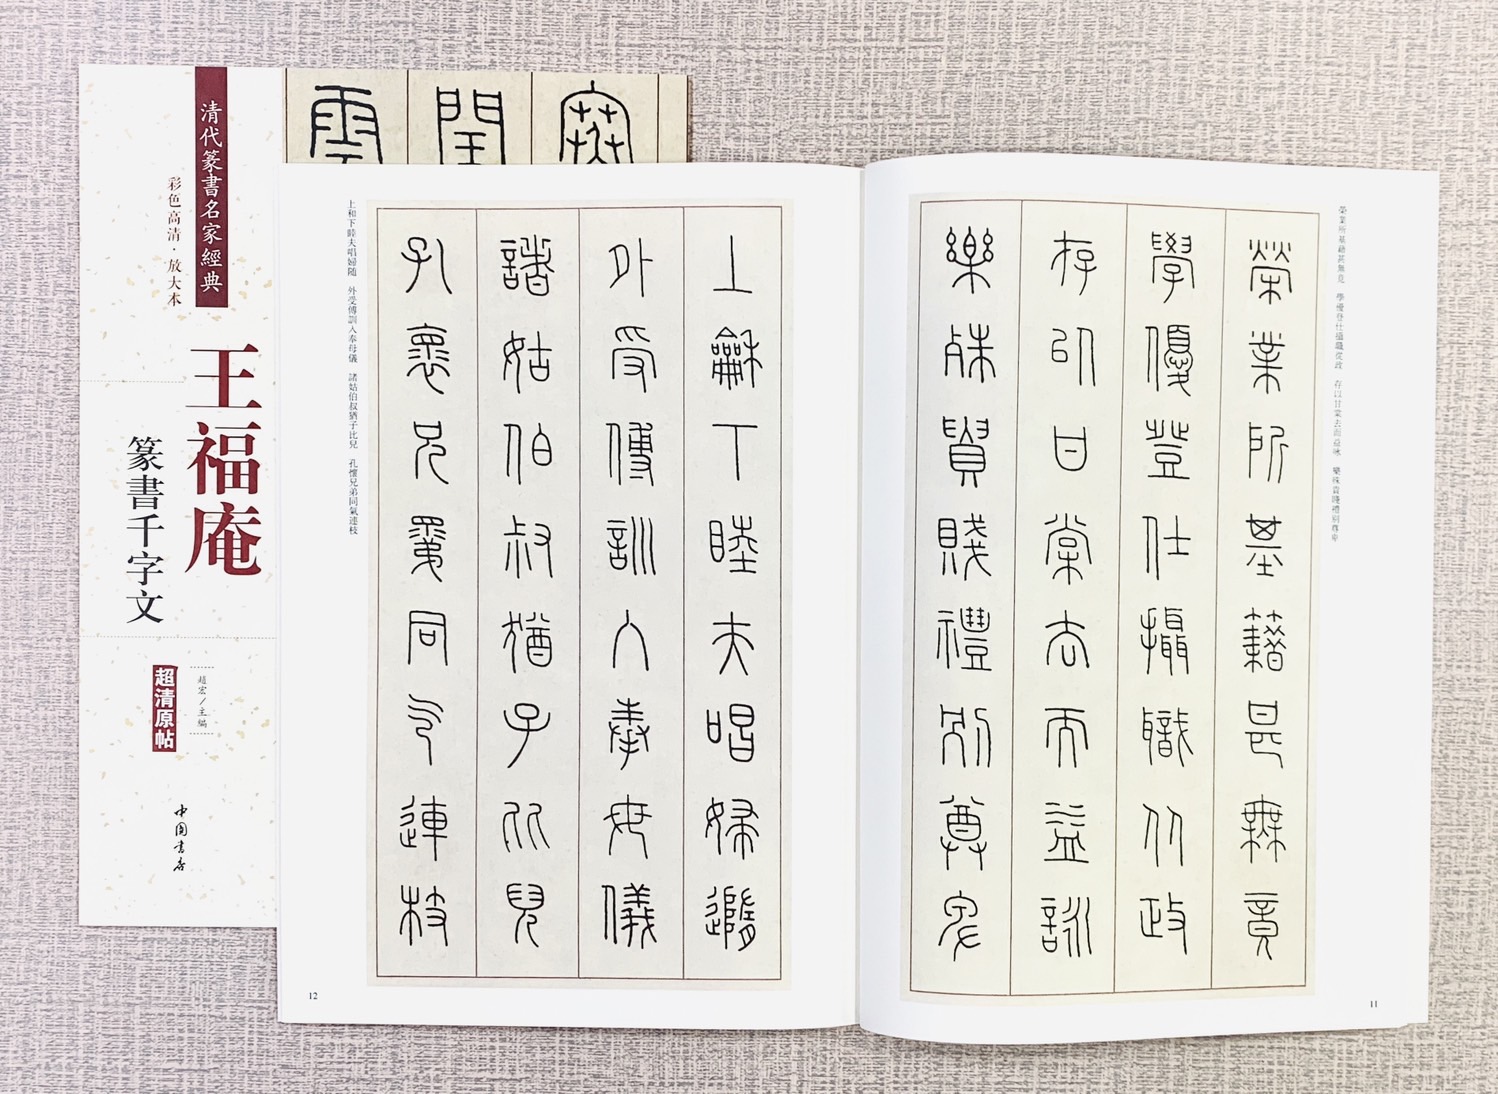 清代篆書名家經典
彩色高清·放大本
王福庵
篆書千字文
趙宏/主編
超清原帖
中國書店
寒
閏
雲
榮業所基籍甚無竟　學優登仕攝職從政　存以甘棠去而益詠　樂殊貴賤禮別尊卑
榮業所基籍甚無竟
學優登仕攝職從政
存以甘棠去而益詠
樂殊貴賤禮別尊卑
11
上龢下睦夫唱婦隨
外受傅訓入奉母儀
諸姑伯叔猶子比兒
孔懷兄弟同氣連枝
上和下睦夫唱婦随　外受傅訓入奉母儀　諸姑伯叔猶子比兒　孔懷兄弟同氣連枝
12